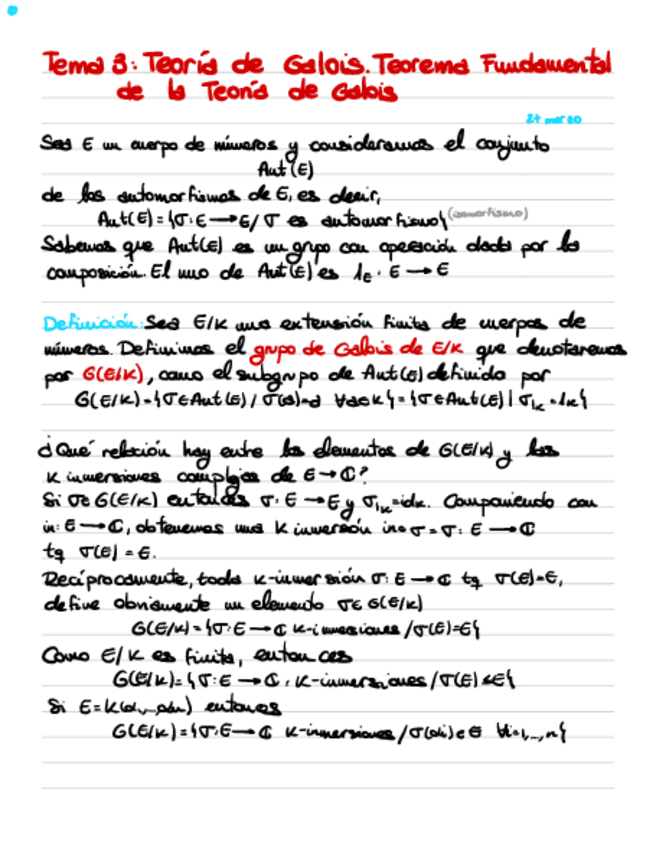 Tema 3: Teoría de Galois. Teorema Fundamental
de la Teoría de Galois
27 marzo
Sea E un cuerpo de números y consideramos el conjunto
Aut(E)
de los automorfismos de E, es decir,
Aut(E)={σ:E→E/ σ es automorfismo} (isomorfismo)
Sabemos que Aut(E) es un grupo con operación dada por la
composición. El uno de Aut(E) es 1_E: E→E
Definición: Sea E/K una extensión finita de cuerpos de
números. Definimos el grupo de Galois de E/K que denotaremos
por G(E/K), como el subgrupo de Aut(E) definido por
G(E/K)={σ∈Aut(E)/ σ(a)=a ∀a∈K}={σ∈Aut(E)| σ|_K=1_K}
¿Qué relación hay entre los elementos de G(E/K) y las
K inmersiones complejas de E→ℂ?
Si σ∈G(E/K) entonces σ:E→E y σ|_K=id_K. Componiendo con
in: E→ℂ, obtenemos una K inmersión in∘σ=σ: E→ℂ
tq σ(E)=E.
Recíprocamente, toda K-inmersión σ: E→ℂ tq σ(E)=E,
define obviamente un elemento σ∈G(E/K)
G(E/K)={σ:E→ℂ K-inmersiones/σ(E)=E}
Como E/K es finita, entonces
G(E/K)={σ:E→ℂ, K-inmersiones/σ(E)⊆E}
Si E=K(α₁,...,αn) entonces
G(E/K)={σ:E→ℂ K-inmersiones/σ(αi)∈E ∀i=1,...,n}